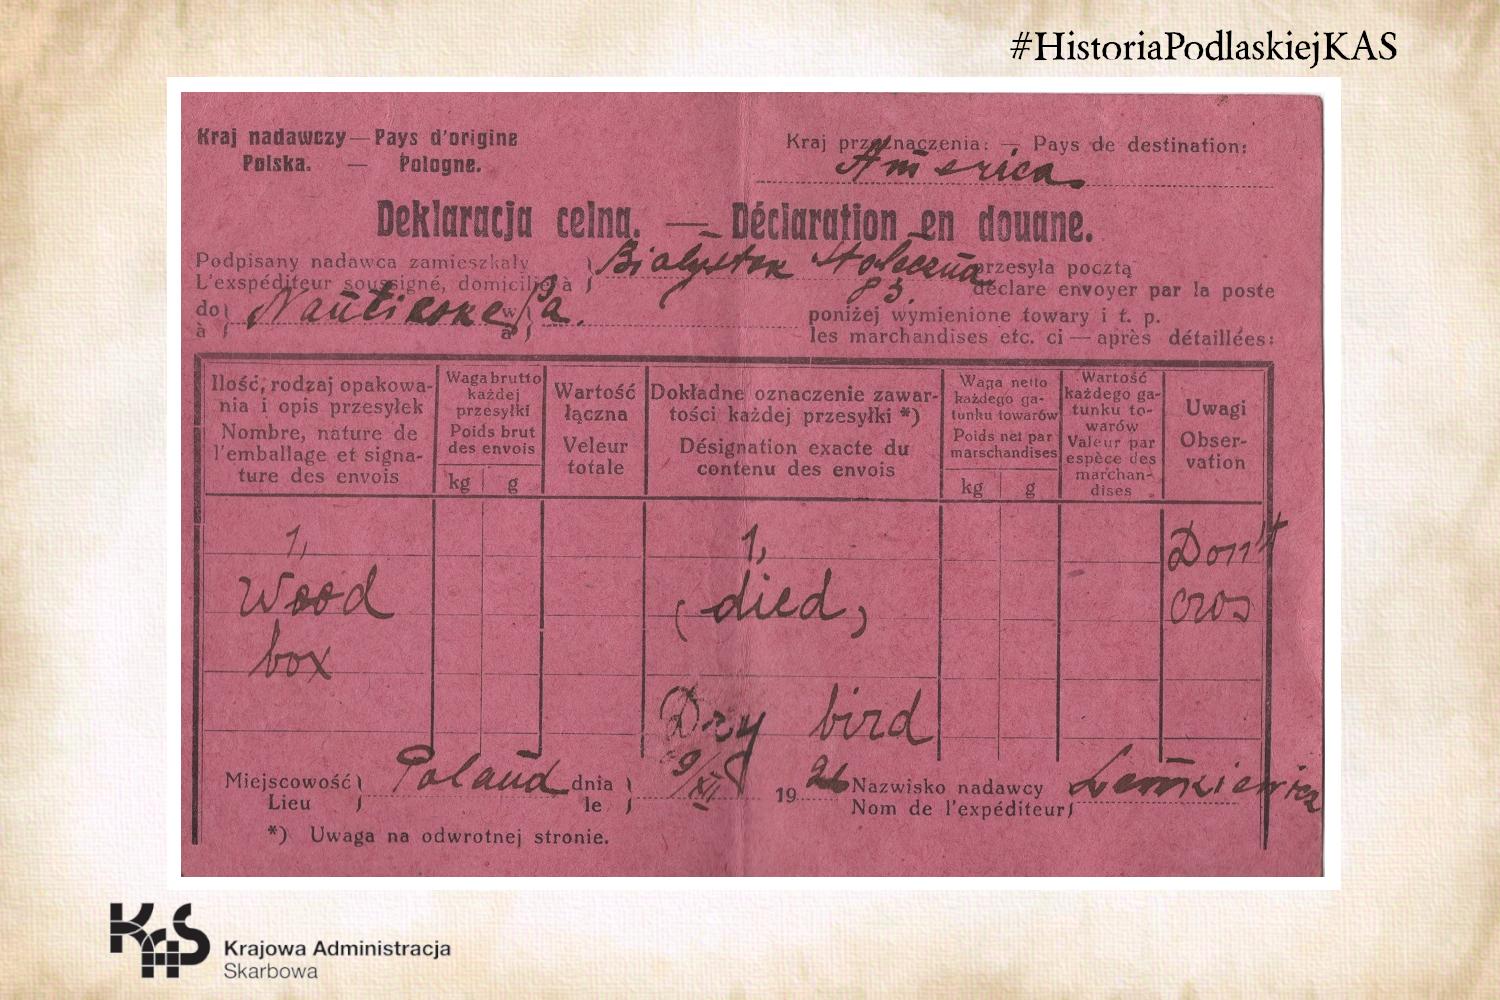 #HistoriaPodlaskiejKAS
Kraj nadawczy — Pays d'origine
Polska. — Pologne.
Kraj przeznaczenia: — Pays de destination:
America
Deklaracja celna. — Déclaration en douane.
Podpisany nadawca zamieszkały
L'expéditeur soussigné, domicilié à
Białystok Stołeczna
83.
przesyła pocztą
déclare envoyer par la poste
do
à
w
à
Pa.
poniżej wymienione towary i t. p.
les marchandises etc. ci — après détaillées:
Ilość, rodzaj opakowa-
nia i opis przesyłek
Nombre, nature de
l'emballage et signa-
ture des envois
Waga brutto
każdej
przesyłki
Poids brut
des envois
kg g
Wartość
łączna
Veleur
totale
Dokładne oznaczenie zawar-
tości każdej przesyłki *)
Désignation exacte du
contenu des envois
Waga netto
każdego ga-
tunku towarów
Poids net par
marschandises
kg g
Wartość
każdego ga-
tunku to-
warów
Valeur par
espèce des
marchan-
dises
Uwagi
Obser-
vation
1,
Wood
box
1,
(died)
Dry bird
Don't
cros
Miejscowość
Lieu
Poland
dnia
le
9/XII
1926
Nazwisko nadawcy
Nom de l'expéditeur
*) Uwaga na odwrotnej stronie.
KAS
Krajowa Administracja
Skarbowa